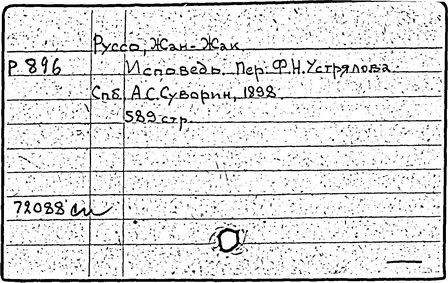 Руссо, Жан-Жак.
Р 896 Исповедь. Пер. Ф.Н.Устрялова.
Спб. А.С.Суворин, 1898.
589 стр.
72088